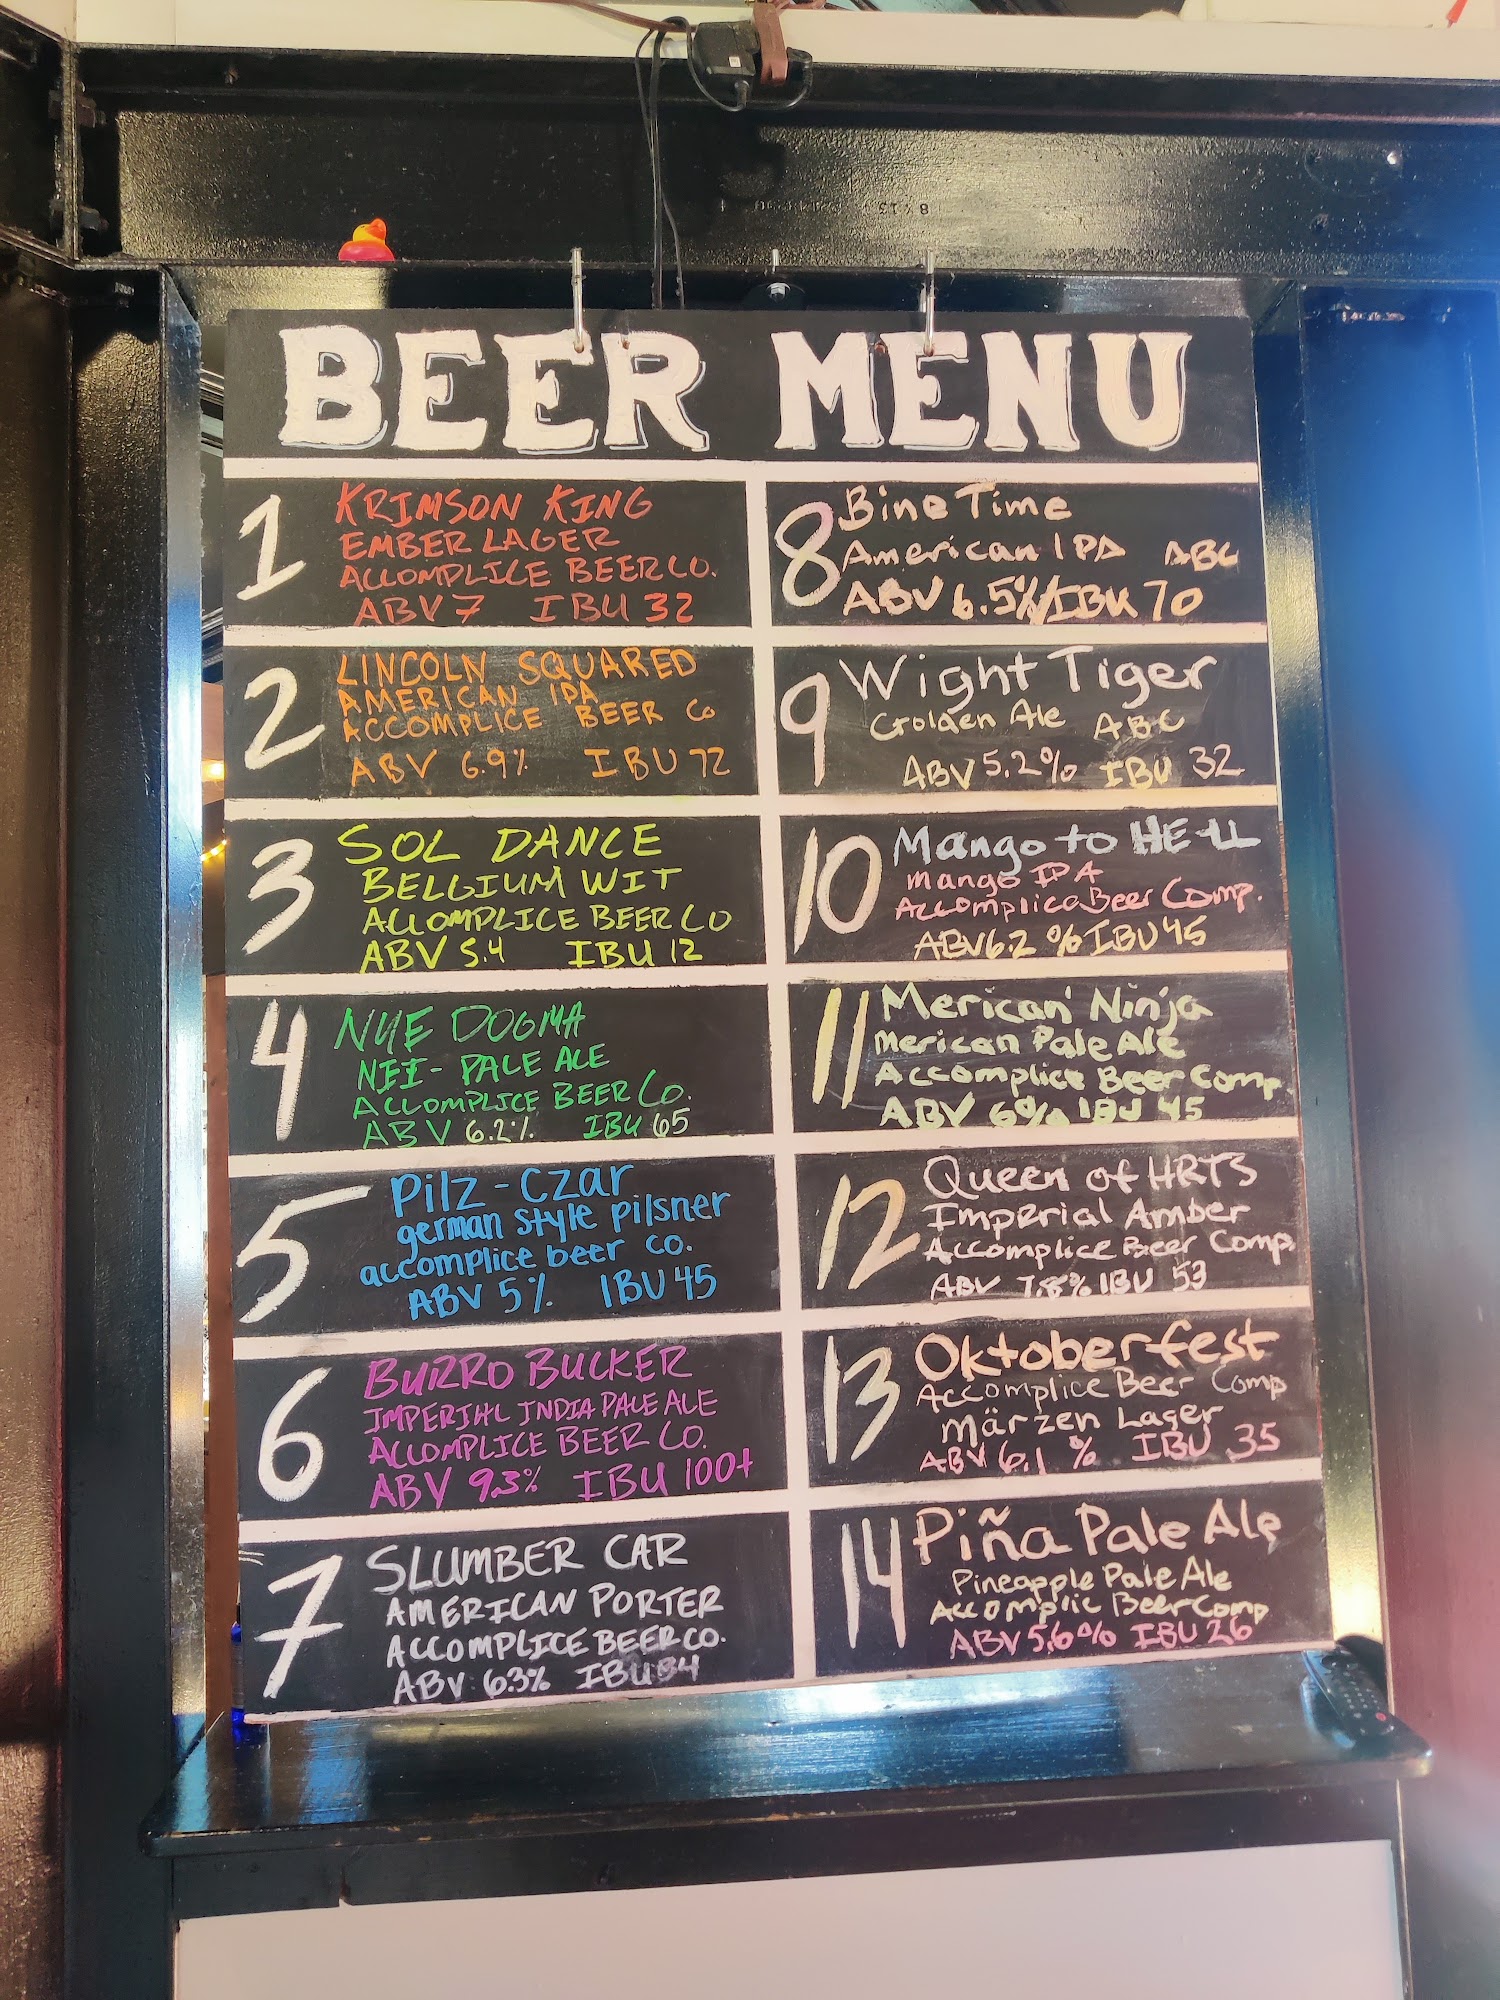 BEER MENU
1
KRIMSON KING
EMBER LAGER
ACCOMPLICE BEER CO.
ABV 7 IBU 32
2
LINCOLN SQUARED
AMERICAN IPA
ACCOMPLICE BEER CO
ABV 6.9% IBU 72
3
SOL DANCE
BELGIUM WIT
ACCOMPLICE BEER CO
ABV 5.4 IBU 12
4
NUE DOGMA
NEI- PALE ALE
ACCOMPLICE BEER CO.
ABV 6.2% IBU 65
5
Pilz-Czar
german style pilsner
accomplice beer co.
ABV 5% IBU 45
6
BURRO BUCKER
IMPERIAL INDIA PALE ALE
ACCOMPLICE BEER CO.
ABV 9.3% IBU 100+
7
SLUMBER CAR
AMERICAN PORTER
ACCOMPLICE BEER CO.
ABV: 6.3% IBU
8
Bine Time
American IPA ABC
ABV 6.5%/IBU 70
9
Wight Tiger
Golden Ale ABC
ABV 5.2% IBU 32
10
Mango to HELL
Mango IPA
Accomplice Beer Comp.
ABV 6.2 % IBU 45
11
Merican' Ninja
Merican Pale Ale
Accomplice Beer Comp.
ABV 6% IBU 45
12
Queen of HRTS
Imperial Amber
Accomplice Beer Comp.
ABV 7.8% IBU 53
13
Oktoberfest
Accomplice Beer Comp
Märzen Lager
ABV 6.1 % IBU 35
14
Piña Pale Ale
Pineapple Pale Ale
Accomplic Beer Comp
ABV 5.6% IBU 26